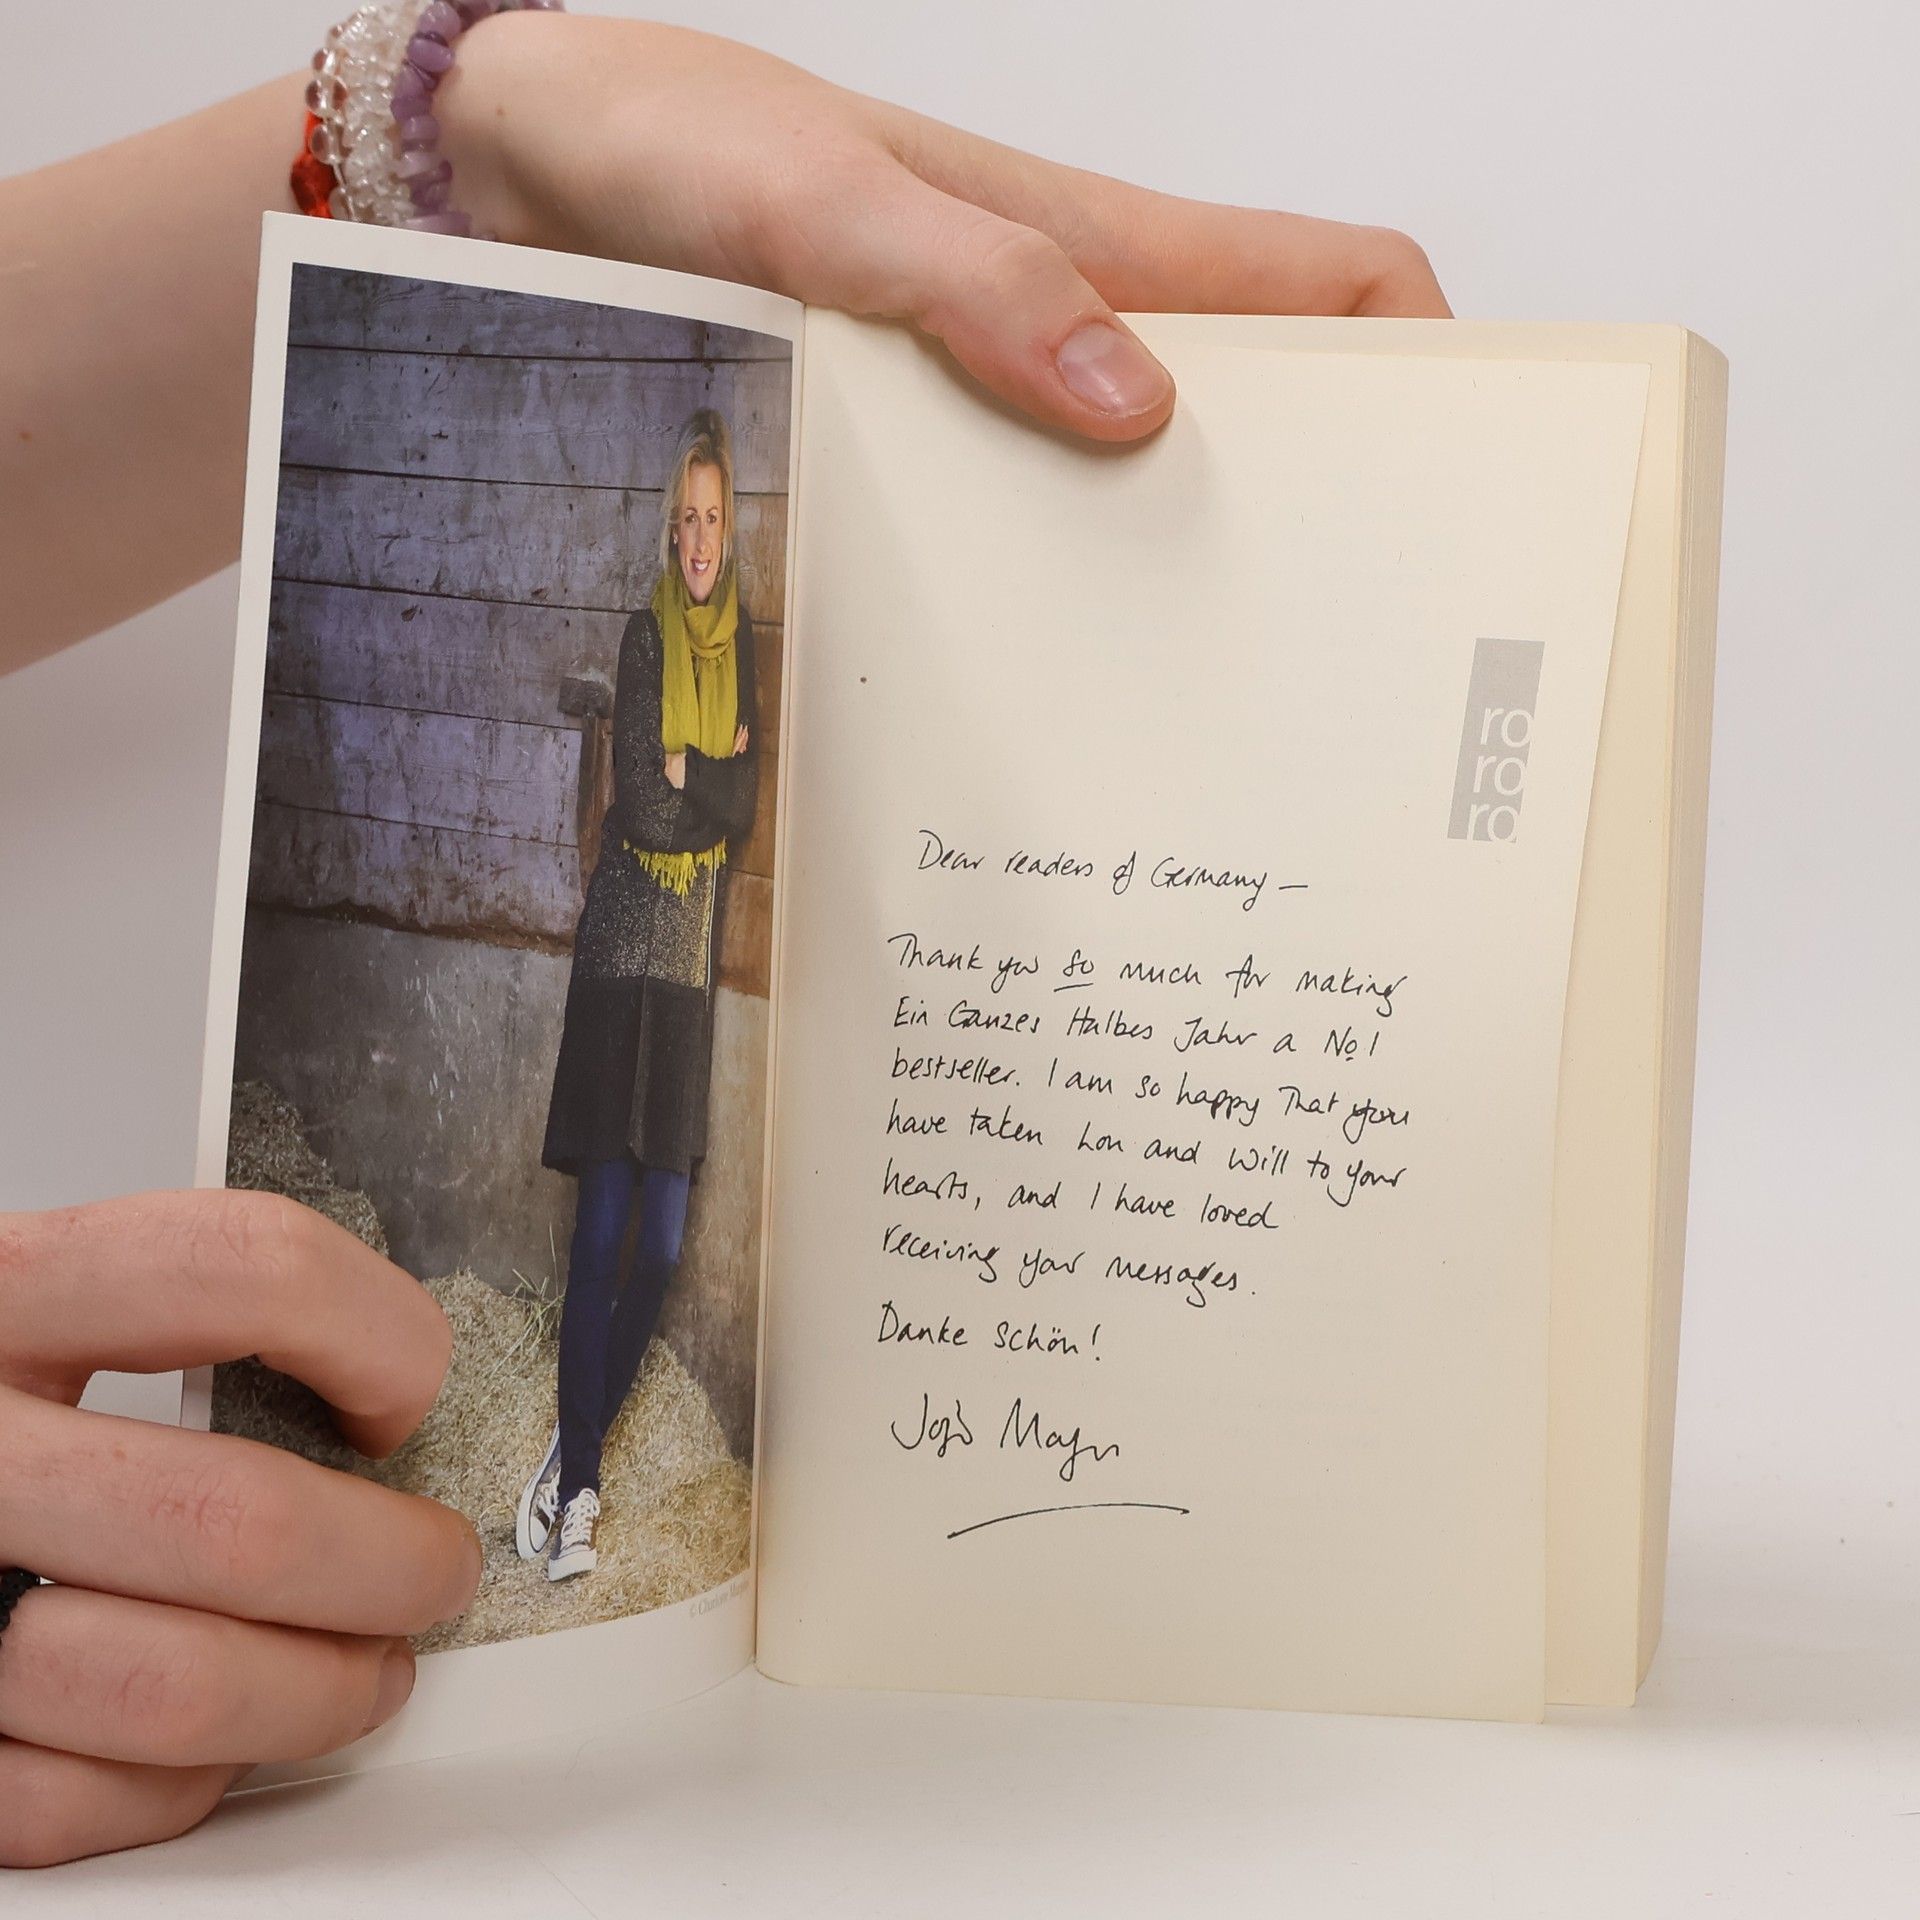 ro
ro
ro
Dear readers of Germany –
Thank you so much for making
Ein Ganzes Halbes Jahr a No 1
bestseller. I am so happy that you
have taken Lou and Will to your
hearts, and I have loved
receiving your messages.
Danke schön!
Jojo Moyes